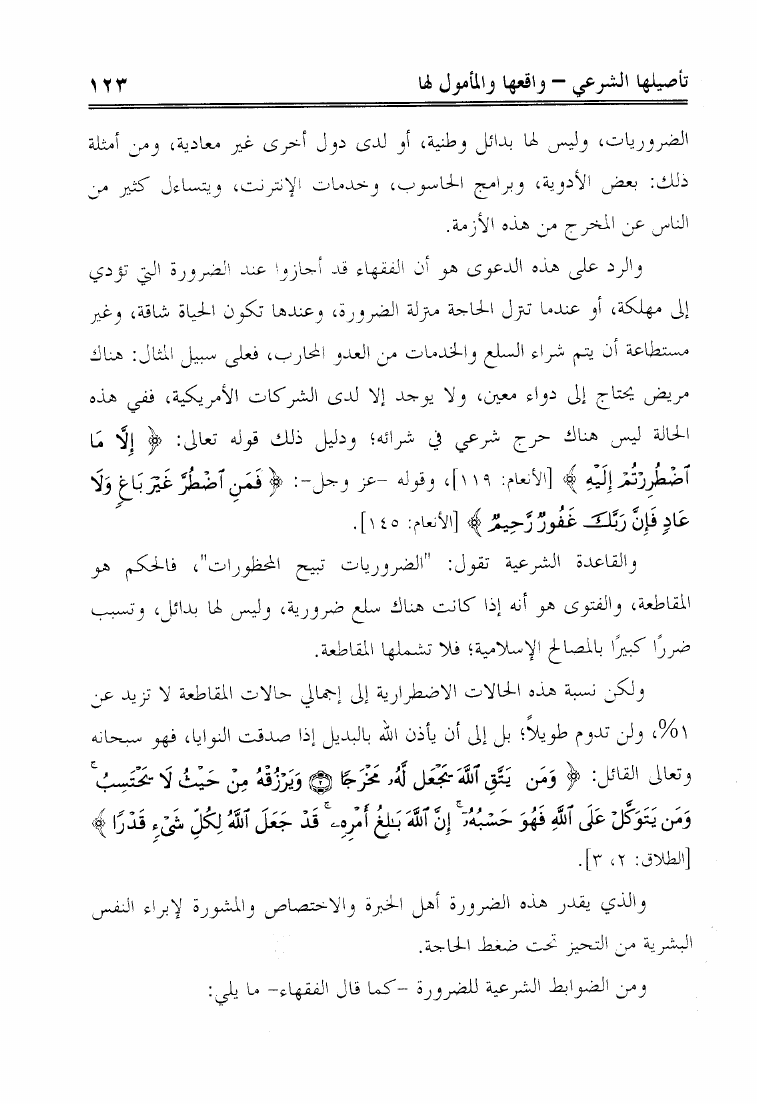 تأصيلها الشرعي – واقعها والمأمول لها ١٢٣
الضروريات، وليس لها بدائل وطنية، أو لدى دول أخرى غير معادية، ومن أمثلة
ذلك: بعض الأدوية، وبرامج الحاسوب، وخدمات الإنترنت، ويتساءل كثير من
الناس عن المخرج من هذه الأزمة.
والرد على هذه الدعوى هو أن الفقهاء قد أجازوا عند الضرورة التي تؤدي
إلى مهلكة، أو عندما تنزل الحاجة منزلة الضرورة، وعندها تكون الحياة شاقة، وغير
مستطاعة أن يتم شراء السلع والخدمات من العدو المحارب، فعلى سبيل المثال: هناك
مريض يحتاج إلى دواء معين، ولا يوجد إلا لدى الشركات الأمريكية، ففي هذه
الحالة ليس هناك حرج شرعي في شرائه؛ ودليل ذلك قوله تعالى: ﴿ إِلَّا مَا
ٱضْطُرِرْتُمْ إِلَيْهِ ﴾ [الأنعام: ١١٩]، وقوله -عز وجل-: ﴿ فَمَنِ ٱضْطُرَّ غَيْرَ بَاغٍ وَلَا
عَادٍ فَإِنَّ رَبَّكَ غَفُورٌ رَّحِيمٌ ﴾ [الأنعام: ١٤٥].
والقاعدة الشرعية تقول: "الضروريات تبيح المحظورات"، فالحكم هو
المقاطعة، والفتوى هو أنه إذا كانت هناك سلع ضرورية، وليس لها بدائل، وتسبب
ضررًا كبيرًا بالمصالح الإسلامية؛ فلا تشملها المقاطعة.
ولكن نسبة هذه الحالات الاضطرارية إلى إجمالي حالات المقاطعة لا تزيد عن
١%، ولن تدوم طويلاً؛ بل إلى أن يأذن الله بالبديل إذا صدقت النوايا، فهو سبحانه
وتعالى القائل: ﴿ وَمَن يَتَّقِ ٱللَّهَ يَجْعَل لَّهُۥ مَخْرَجًا ۝٢ وَيَرْزُقْهُ مِنْ حَيْثُ لَا يَحْتَسِبُ ۚ
وَمَن يَتَوَكَّلْ عَلَى ٱللَّهِ فَهُوَ حَسْبُهُۥٓ ۚ إِنَّ ٱللَّهَ بَـٰلِغُ أَمْرِهِۦ ۚ قَدْ جَعَلَ ٱللَّهُ لِكُلِّ شَىْءٍ قَدْرًا ﴾
[الطلاق: ٢، ٣].
والذي يقدر هذه الضرورة أهل الخبرة والاختصاص والمشورة لإبراء النفس
البشرية من التحيز تحت ضغط الحاجة.
ومن الضوابط الشرعية للضرورة -كما قال الفقهاء- ما يلي: